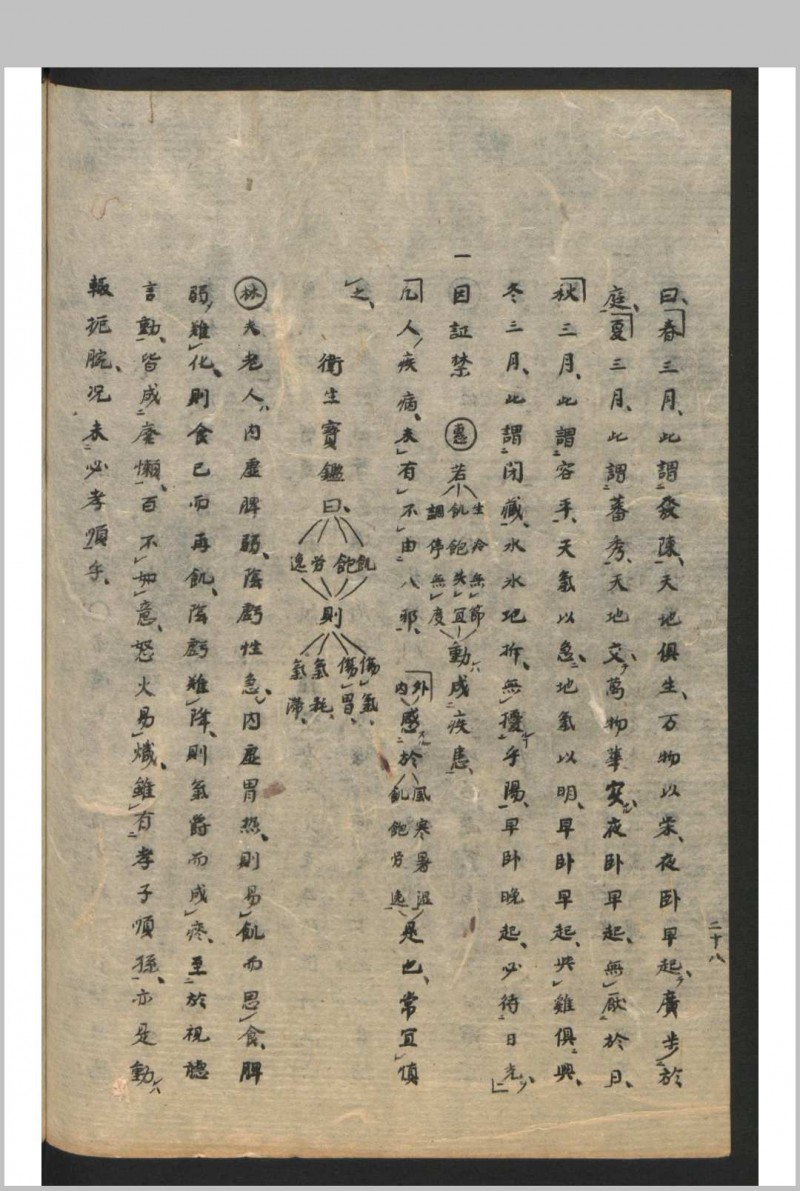 曰、春三月、此謂發陳、天地俱生、万物以栄、夜卧早起、廣步於
庭、夏三月、此謂蕃秀、天地交、萬物華実、夜卧早起、無厭於日、
秋三月、此謂容平、天氣以急、地氣以明、早卧早起、与雞俱興、
冬三月、此謂閉藏、水氷地拆、無擾乎陽、早卧晚起、必待日光、
一 因証禁 若 生冷無節 飢飽失宜 調停無度 動成疾患、
凡人疾病、未有不由八邪、 外 内 感於 風寒暑湿 飢飽労逸 是也、常宜慎
之、
衛生寶鑑曰、 飢 飽 労 逸 則 傷氣、 傷胃、 氣耗、 氣滞、
林 夫老人、内虚脾弱、陰虧性急、内虚胃热、則易飢而思食、脾
弱難化、則食已而再飢、陰虧難降、則氣爵而成痰、至於視聴
言動、皆成廃懶、百不如意、怒火易熾、雖有孝子順孫、亦是動
輙扼腕、况未必孝順乎、
二十八